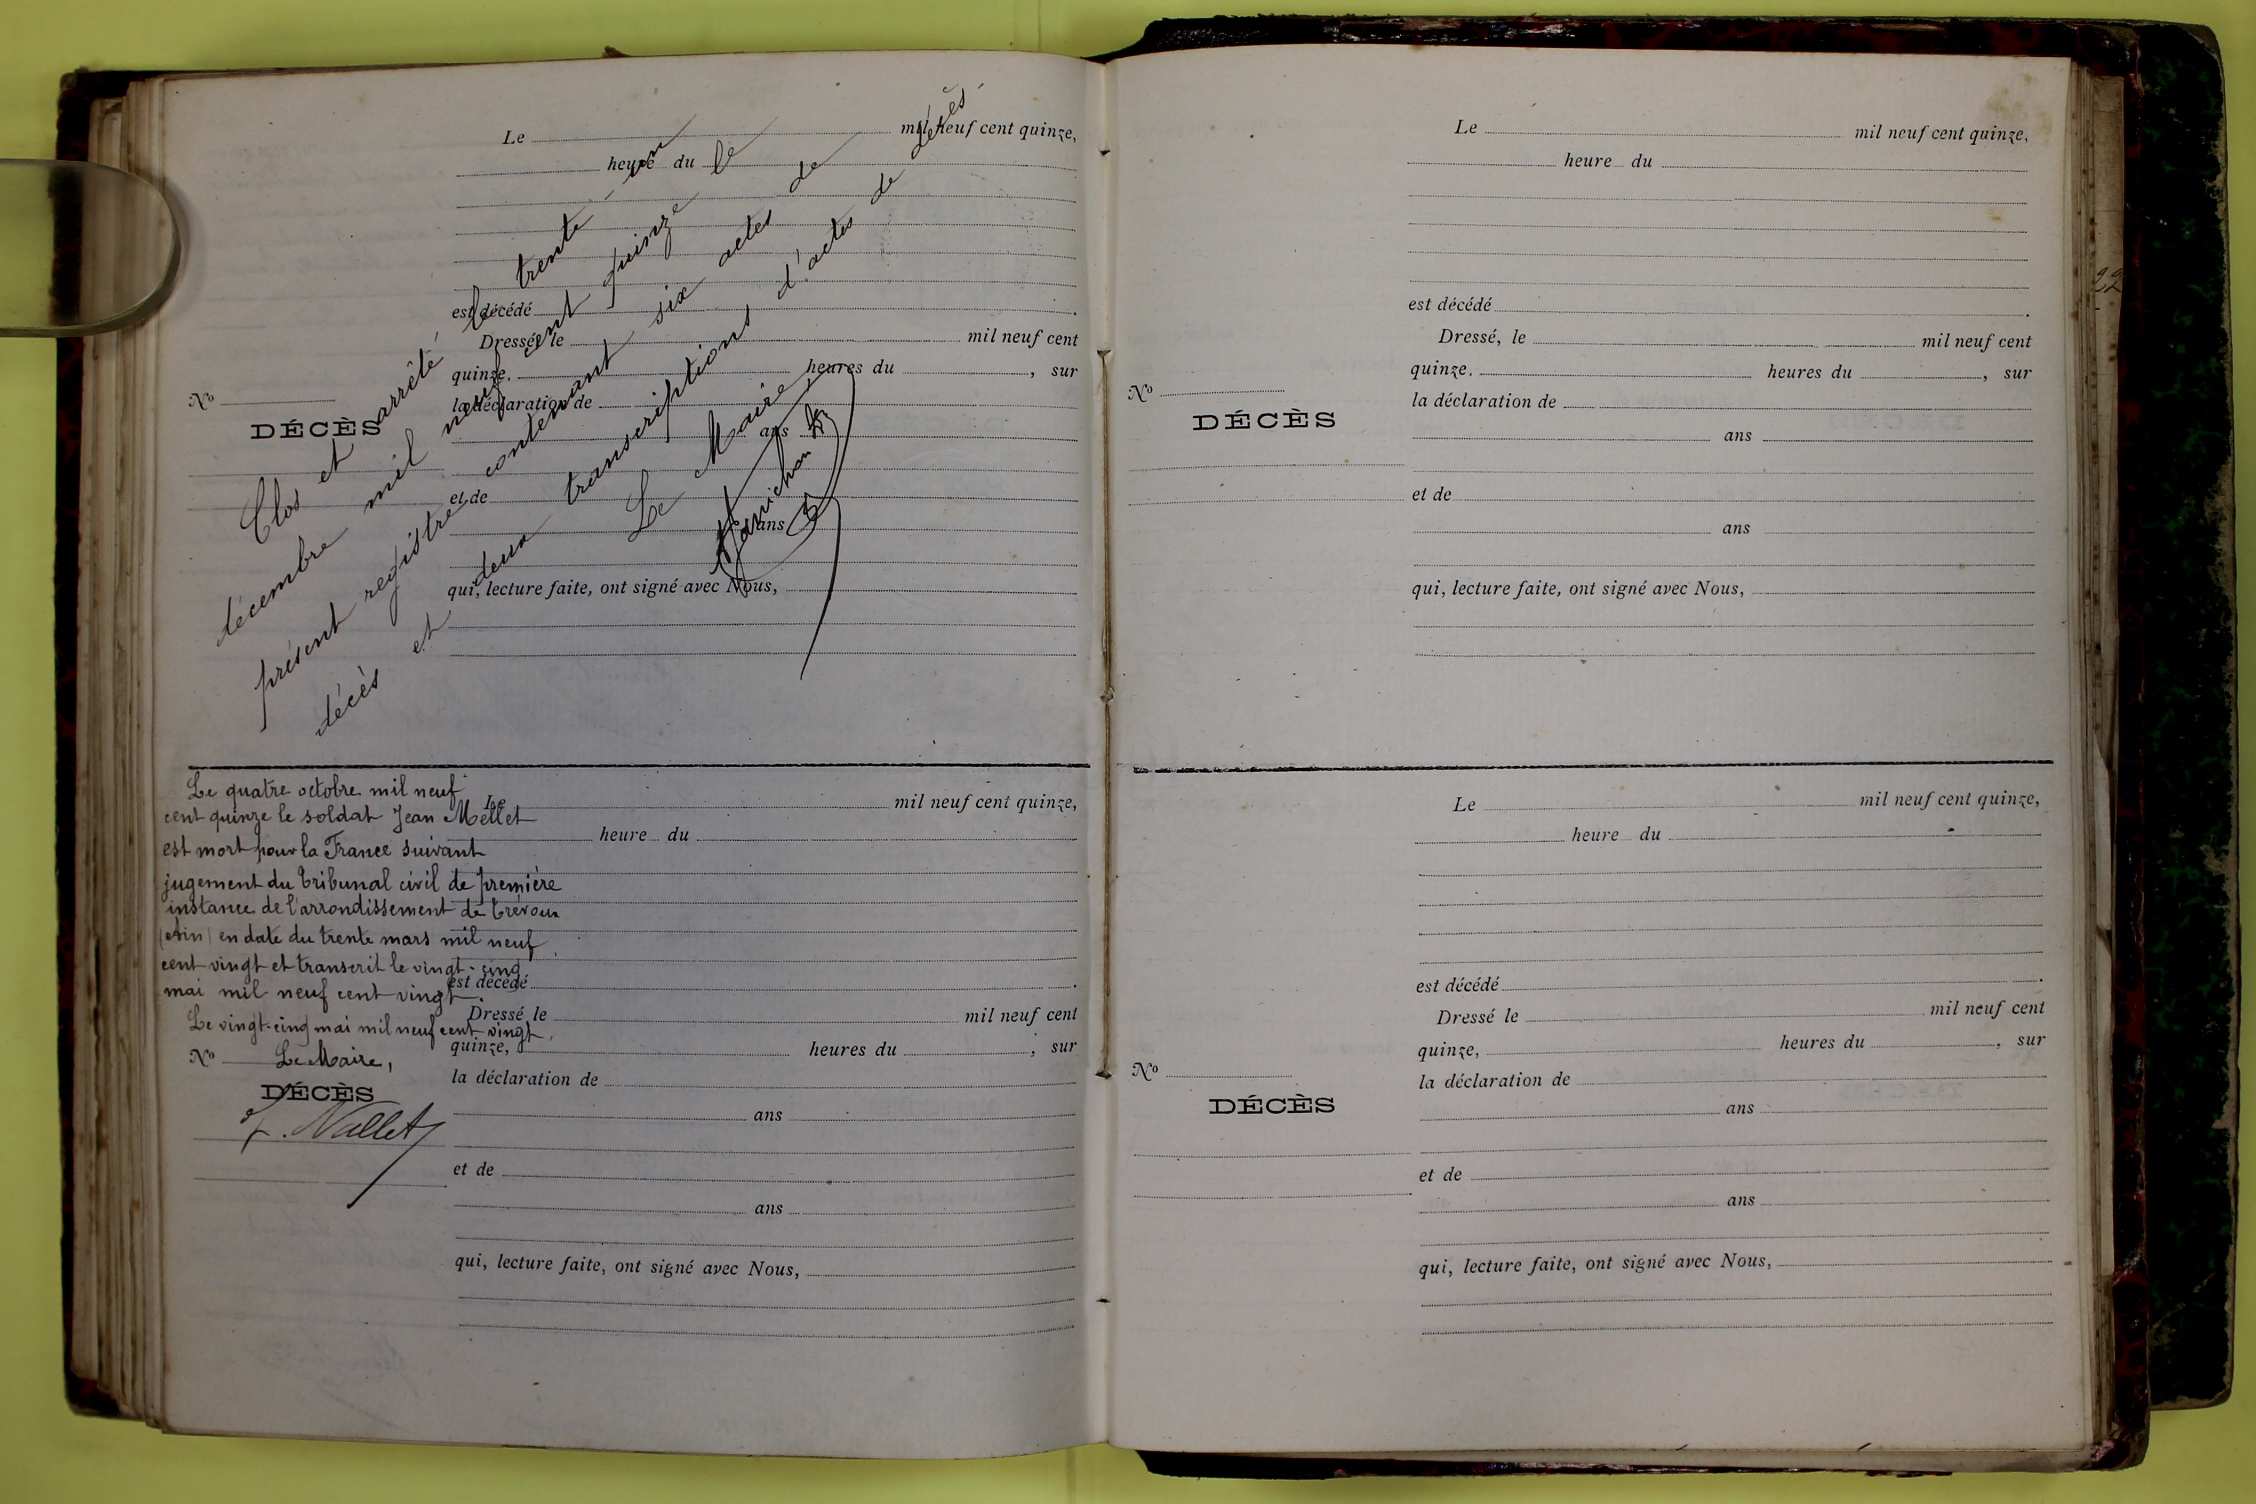 Le mil neuf cent quinze,
heure du
est décédé
Dressé, le mil neuf cent
quinze. heures du , sur
la déclaration de
ans
et de
ans
qui, lecture faite, ont signé avec Nous,
No
DÉCÈS
Clos et arrêté le trente-un
décembre mil neuf cent quinze le
présent registre contenant six actes de
décès et deux transcriptions d'actes de décès
Le Maire
Le quatre octobre mil neuf
cent quinze le soldat Jean Mellet
est mort pour la France suivant
jugement du tribunal civil de première
instance de l'arrondissement de Trévoux
(Ain) en date du trente mars mil neuf
cent vingt et transcrit le vingt-cinq
mai mil neuf cent vingt.
Le vingt-cinq mai mil neuf cent vingt.
Le Maire,
No
DÉCÈS
Nallet
Le mil neuf cent quinze,
heure du
est décédé
Dressé le mil neuf cent
quinze, heures du , sur
la déclaration de
ans
et de
ans
qui, lecture faite, ont signé avec Nous,
Le mil neuf cent quinze,
heure du
est décédé
Dressé, le mil neuf cent
quinze. heures du , sur
No
DÉCÈS
la déclaration de
ans
et de
ans
qui, lecture faite, ont signé avec Nous,
22
Le mil neuf cent quinze,
heure du
est décédé
Dressé le mil neuf cent
quinze, heures du , sur
No
DÉCÈS
la déclaration de
ans
et de
ans
qui, lecture faite, ont signé avec Nous,